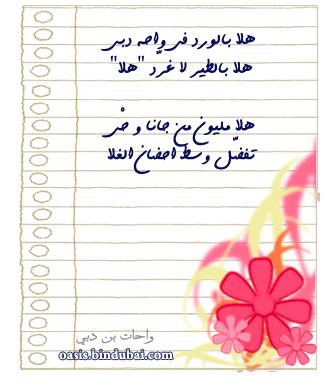 هلا بالورد في واحه دبي
هلا بالطير لا غرّد "هلا"
هلا مليون من جانا و حْر
تفضّل وسط احضان الغلا
واحات بن دبي
oasis.bindubai.com